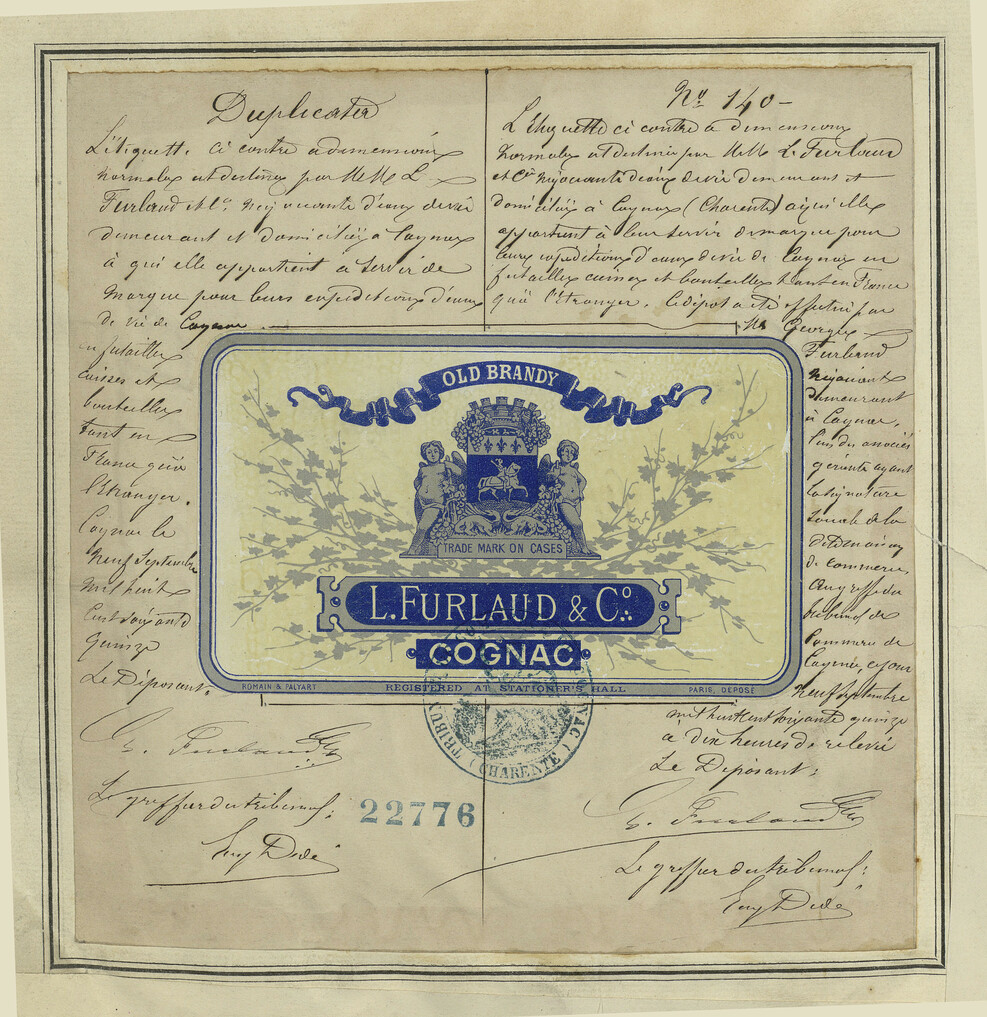 Duplicata
L'étiquette ci contre a dimensions
normales est destinée par M.M. L.
Furlaud et Cie. Négociants d'eaux de vie
demeurant et domiciliés à Cognac
à qui elle appartient à servir de
marque pour leurs expéditions d'eaux
de vie de Cognac
en futailles
caisses et
bouteilles
tant en
France qu'à
l'étranger.
Cognac le
neuf Septembre
mil huit
cent soixante
quinze
Le Déposant.
G. Furlaud
Le greffier du tribunal:
Eug Dedé
No. 140 -
L'Etiquette ci contre a dimensions
normales est destinée par M.M. L. Furlaud
et Cie Négociants d'eaux de vie demeurant et
domiciliés à Cognac (Charente) à qui elle
appartient à leur servir de marque pour
leurs expéditions d'eaux de vie de Cognac en
futailles caisses et bouteilles tant en France
qu'à l'étranger. Le dépot a été effectué par
Mr Georges
Furlaud
Négociant
demeurant
à Cognac,
l'un des associés
gérants ayant
la signature
de la
de commerce,
au greffe du
tribunal de
Commerce de
Cognac, ce jour
neuf Septembre
mil huit cent soixante quinze
à dix heures de relevée
Le Déposant:
G. Furlaud
Le greffier du tribunal:
Eug Dedé
OLD BRANDY
TRADE MARK ON CASES
L. FURLAUD & Co.
COGNAC
ROMAIN & PALYART
REGISTERED AT STATIONER'S HALL
PARIS, DEPOSÉ
(CHARENTE)
22776